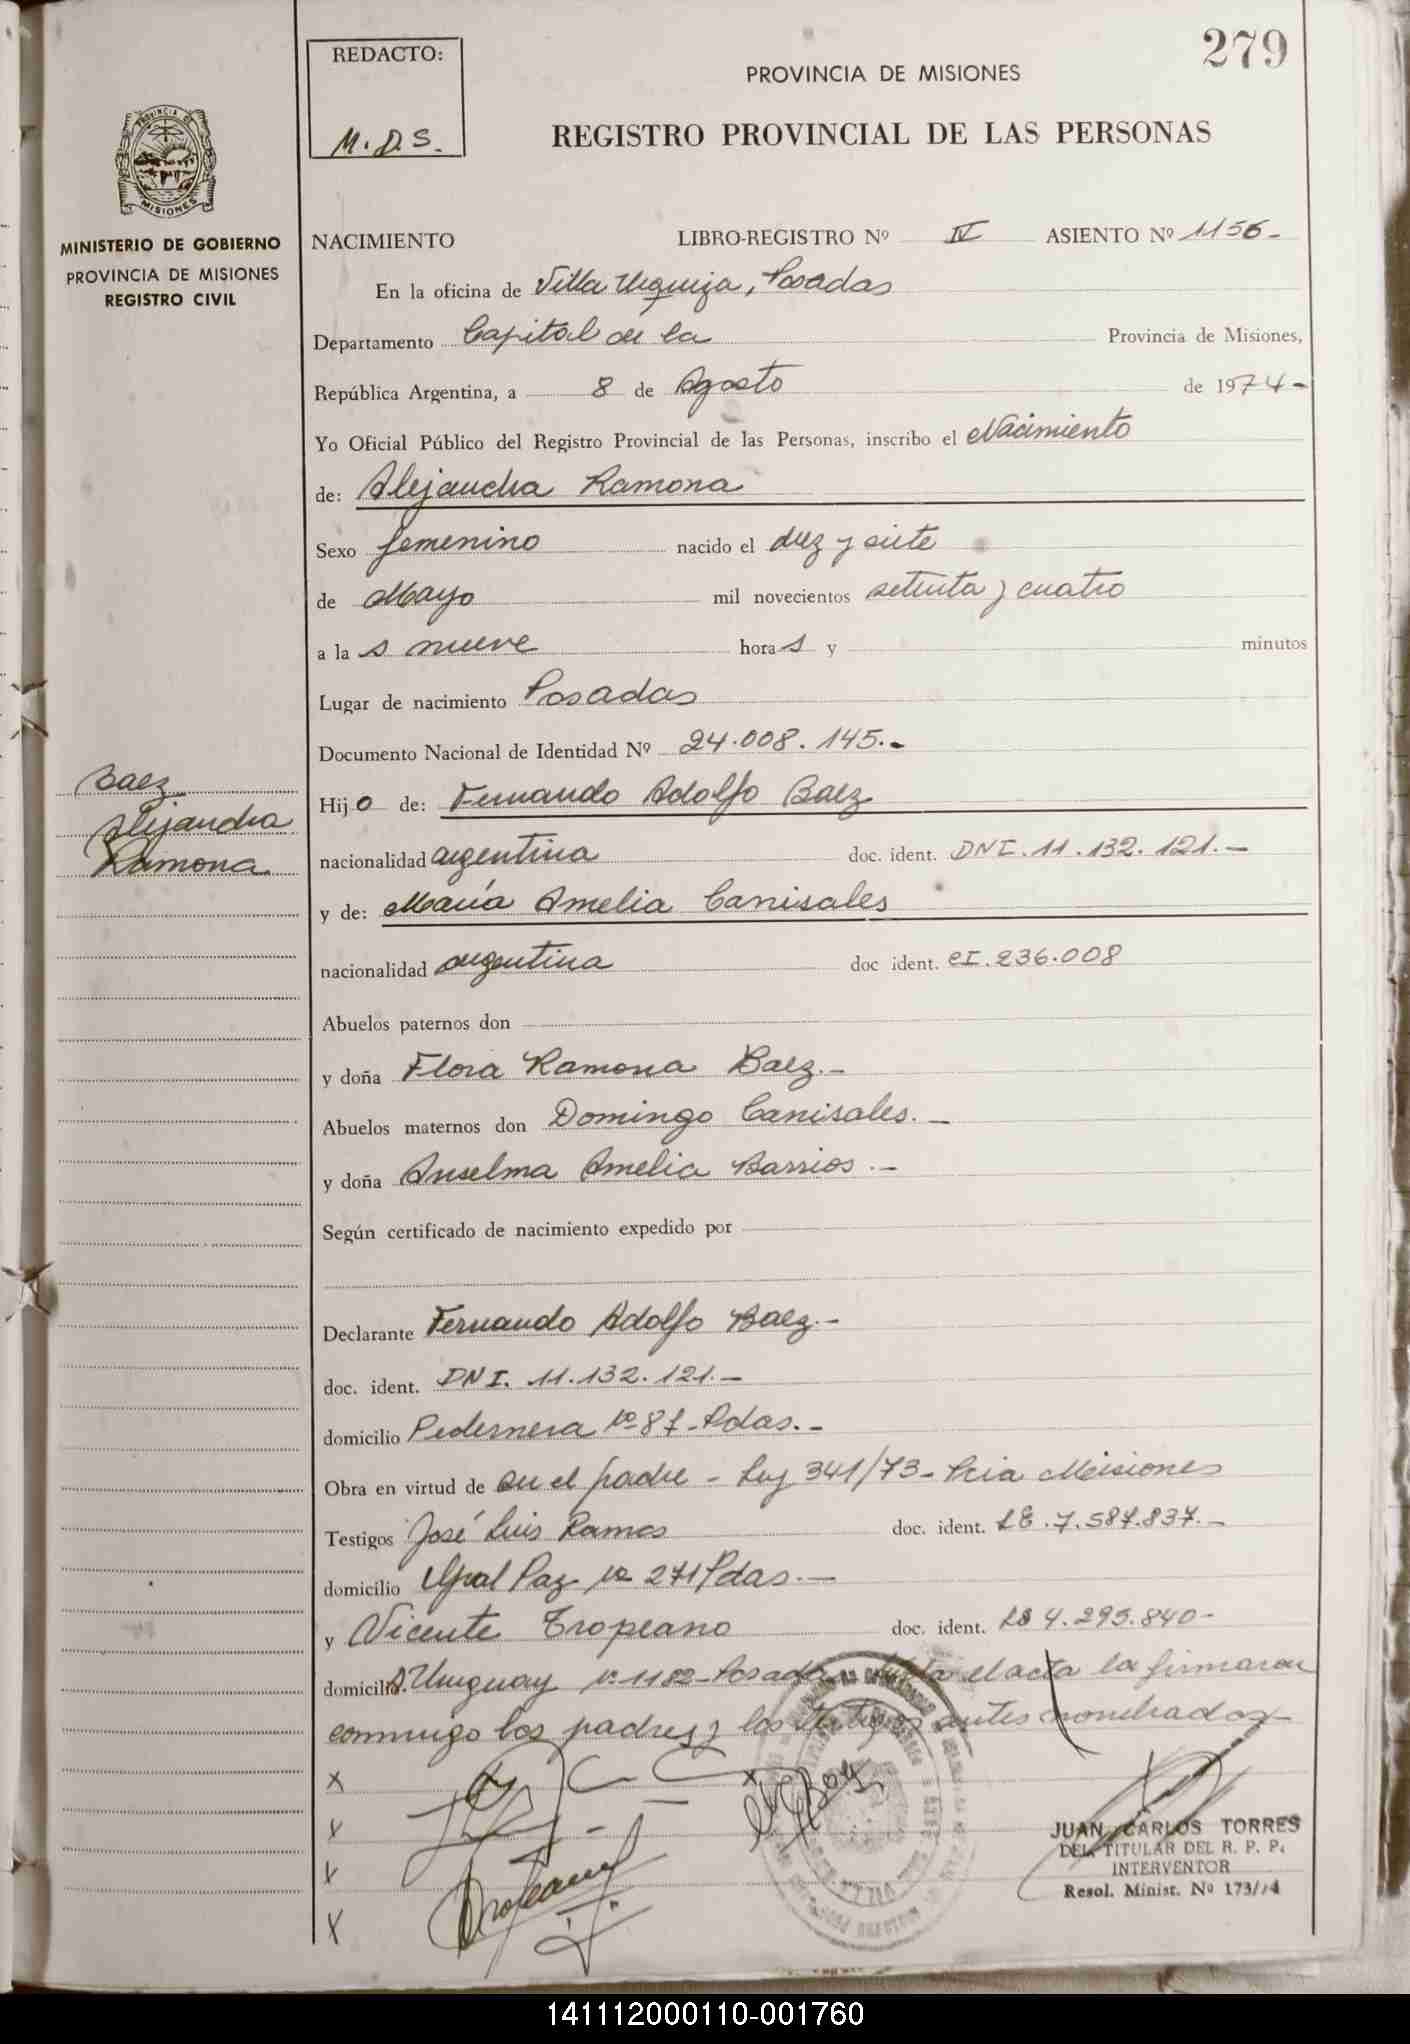 279
REDACTO:
M.D.S.
PROVINCIA DE MISIONES
REGISTRO PROVINCIAL DE LAS PERSONAS
PROVINCIA DE
MISIONES
MINISTERIO DE GOBIERNO
PROVINCIA DE MISIONES
REGISTRO CIVIL
NACIMIENTO LIBRO-REGISTRO Nº IV ASIENTO Nº 1156-
En la oficina de Villa Urquiza, Posadas
Departamento Capital de la Provincia de Misiones,
República Argentina, a 8 de Agosto de 1974-
Yo Oficial Público del Registro Provincial de las Personas, inscribo el Nacimiento
de: Alejandra Ramona
Sexo femenino nacido el diez y siete
de Mayo mil novecientos setenta y cuatro
a la s nueve hora s y minutos
Lugar de nacimiento Posadas
Documento Nacional de Identidad Nº 24.008.145.-
Baez
Alejandra
Ramona
Hij o de: Fernando Adolfo Baez
nacionalidad argentina doc. ident. DNI. 11.132.121.-
y de: María Amelia Canisales
nacionalidad argentina doc ident. CI.236.008
Abuelos paternos don
y doña Flora Ramona Baez.-
Abuelos maternos don Domingo Canisales.-
y doña Anselma Amelia Barrios.-
Según certificado de nacimiento expedido por
Declarante Fernando Adolfo Baez.-
doc. ident. DNI. 11.132.121.-
domicilio Pedernera Nº 87-Pdas.-
Obra en virtud de ser el padre - Ley 341/73- Pcia Misiones
Testigos José Luis Ramos doc. ident. LE.7.587.837.-
domicilio Gral Paz Nº 271 Pdas.-
y Vicente Tropeano doc. ident. LE 4.293.840-
domicilio A. Uruguay Nº 1182-Posadas el acta la firmaron
conmigo los padres y los testigos antes nombrados-
x
x
x
x
x
JUAN CARLOS TORRES
DEL. TITULAR DEL R. P. P.
INTERVENTOR
Resol. Minist. Nº 173/74
141112000110-001760